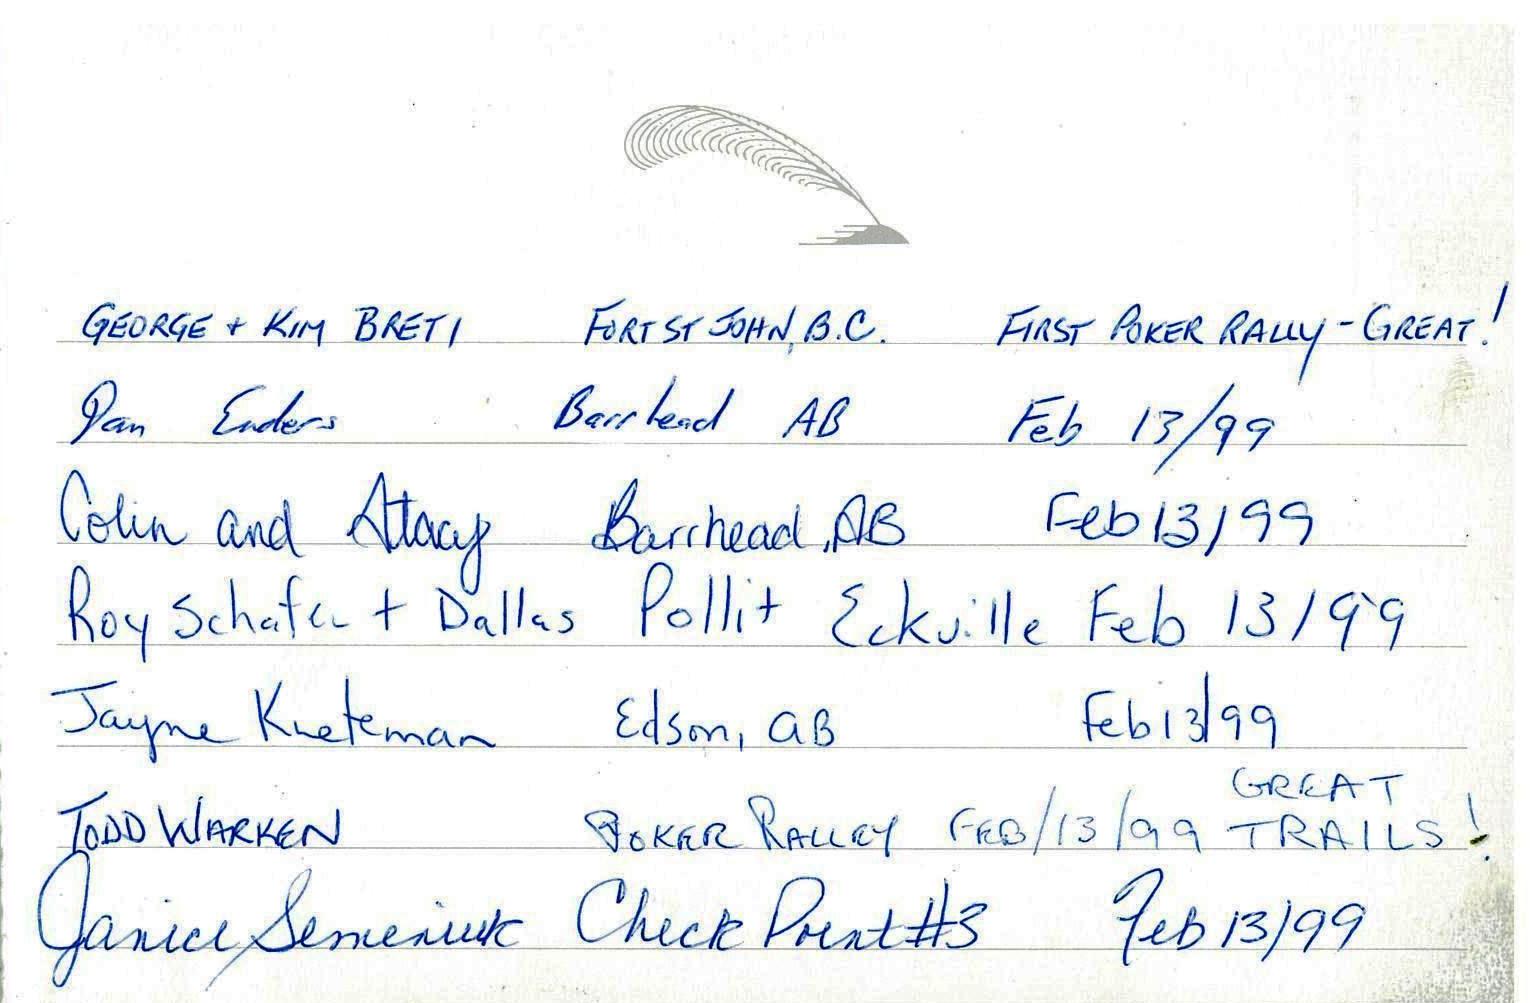 GEORGE + KIM BRETI FORT ST JOHN, B.C. FIRST POKER RALLY - GREAT!
Dan Enders Barrhead AB Feb 13/99
Colin and Stacy Barrhead, AB Feb 13/99
Roy Schafer + Dallas Pollit Eckville Feb 13/99
Jayne Edson, AB Feb 13/99
GREAT
TODD WARKEN POKER RALLEY FEB/13/99 TRAILS!
Janice Semeniuk Check Point #3 Feb 13/99